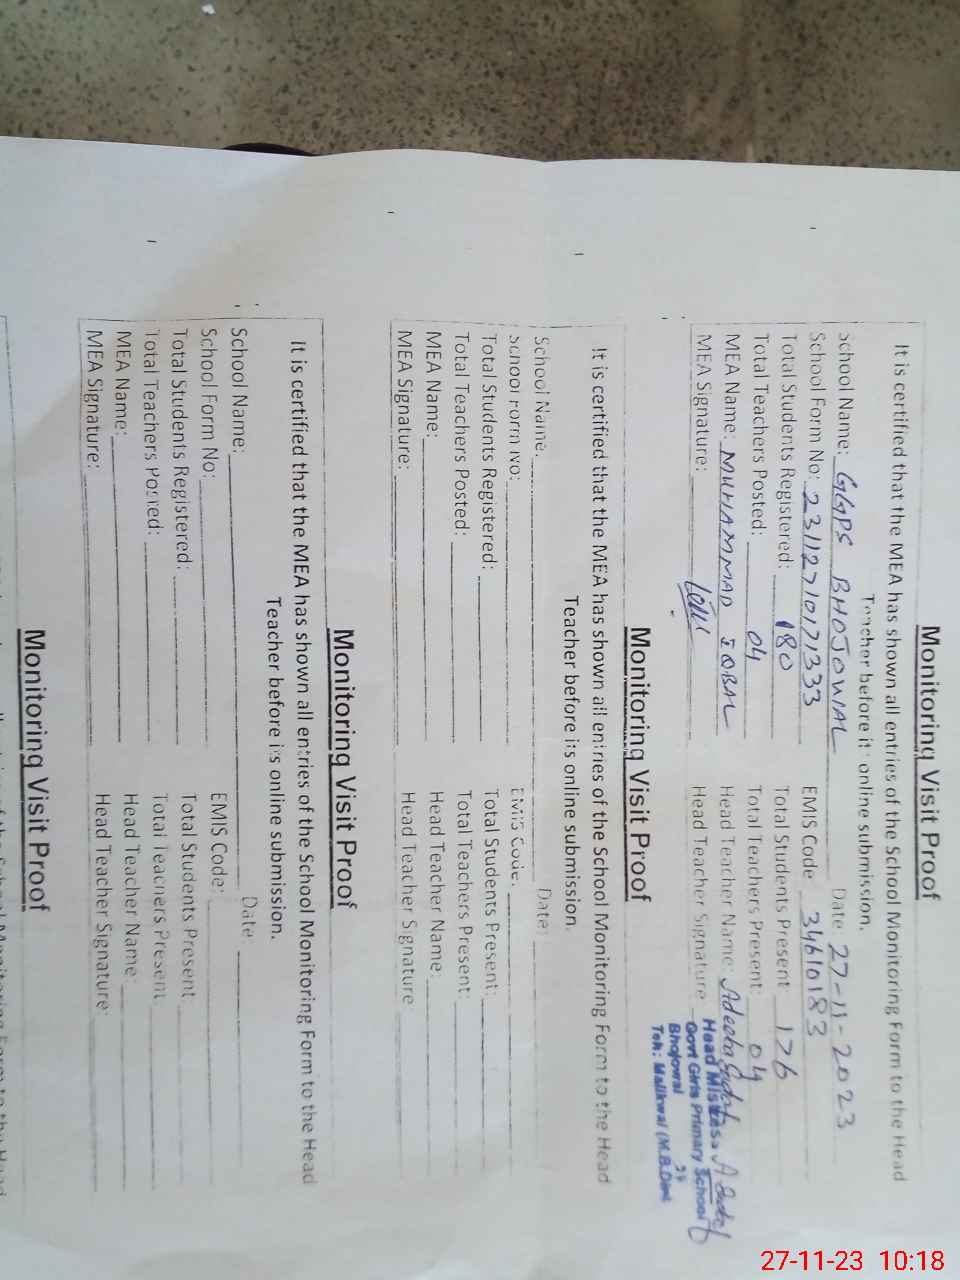 Monitoring Visit Proof
It is certified that the MEA has shown all entries of the School Monitoring Form to the Head
Teacher before it online submission.
School Name: GGPS BHOJOWAL Date 27-11-2023
School Form No: 23112710171333 EMIS Code 34610183
Total Students Registered: 180 Total Students Present: 176
Total Teachers Posted: 04 Total Teachers Present: 04
MEA Name: MUHAMMAD IQBAL Head Teacher Name: Adeeba
MEA Signature: Head Teacher Signature
Head Mistress
Govt Girls Primary School
Bhojowal
Teh: Malikwal (M.B.Din)
Monitoring Visit Proof
It is certified that the MEA has shown all entries of the School Monitoring Form to the Head
Teacher before its online submission.
School Name: Date:
School Form No: EMIS Code:
Total Students Registered: Total Students Present:
Total Teachers Posted: Total Teachers Present:
MEA Name: Head Teacher Name:
MEA Signature: Head Teacher Signature:
Monitoring Visit Proof
It is certified that the MEA has shown all entries of the School Monitoring Form to the Head
Teacher before its online submission.
School Name: Date:
School Form No: EMIS Code:
Total Students Registered: Total Students Present:
Total Teachers Posted: Total Teachers Present:
MEA Name: Head Teacher Name:
MEA Signature: Head Teacher Signature:
Monitoring Visit Proof
27-11-23 10:18